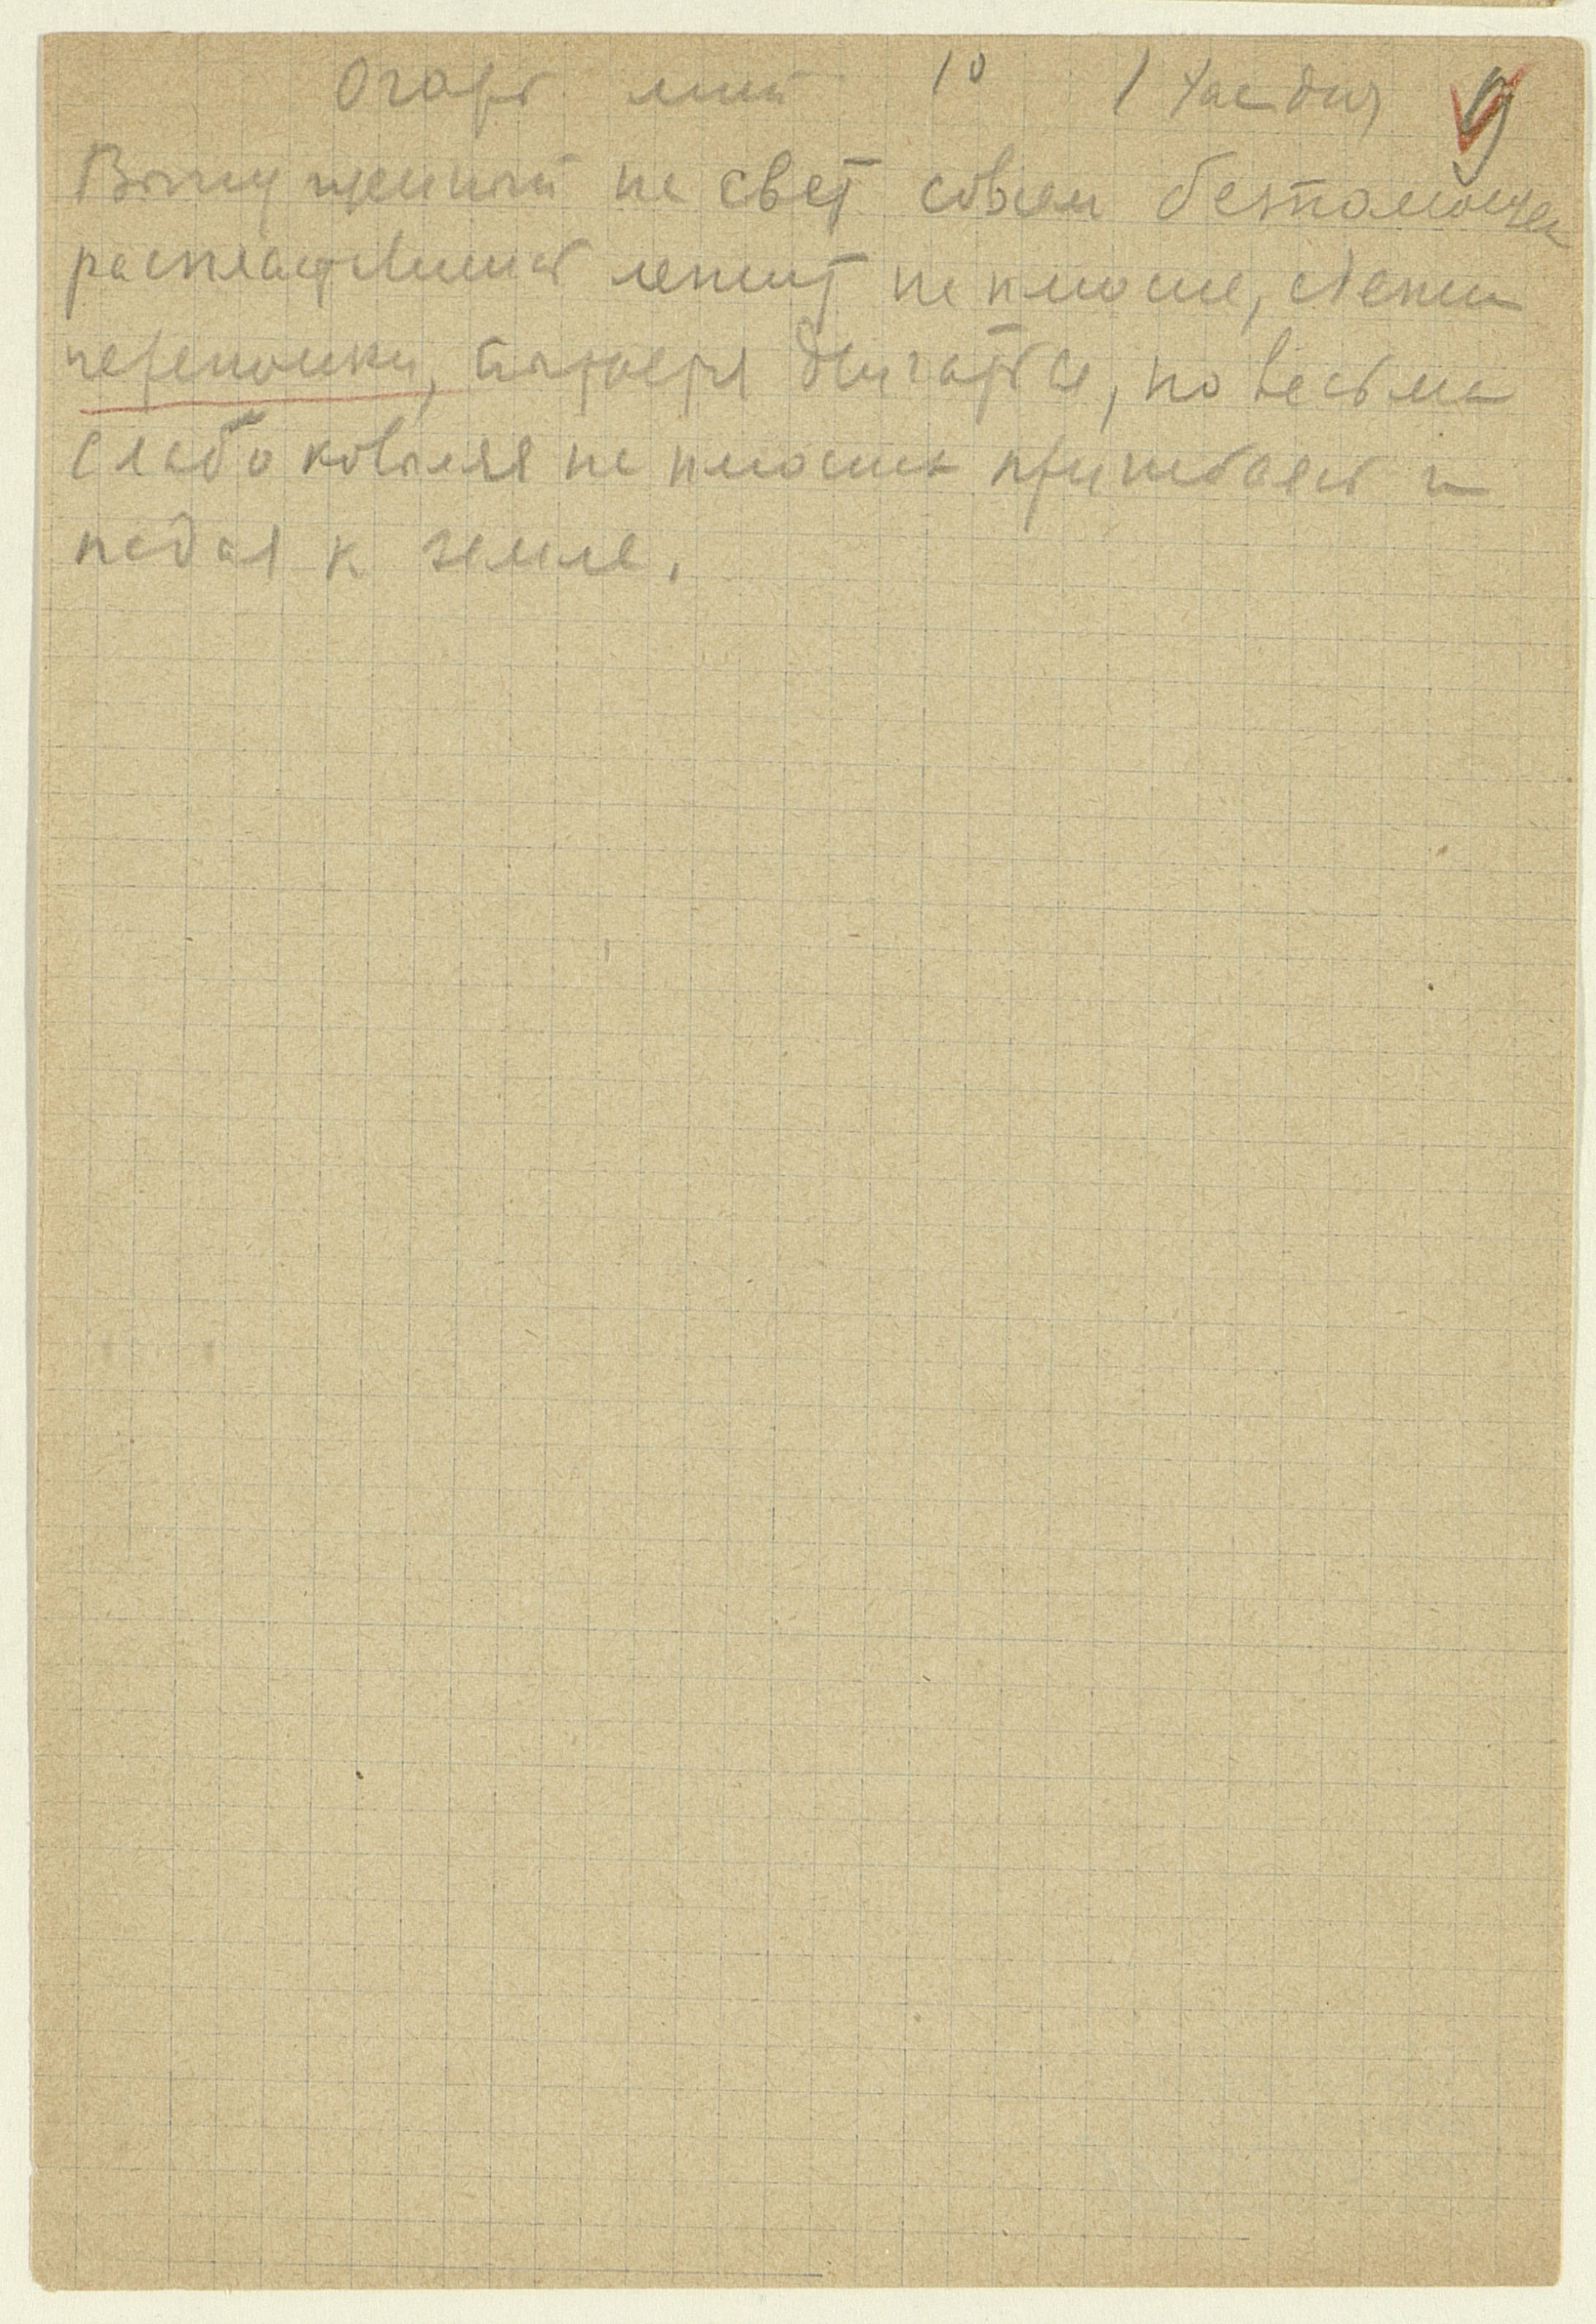 Огарь мин 10 1 час дня 9
Выпущенный на свет совсем беспомощен
распластавшись лежит на плюсне, слепы
перепонки, пытается двигаться, но весьма
слабо ковыляя на плюснах пригибаясь и
падая к земле.